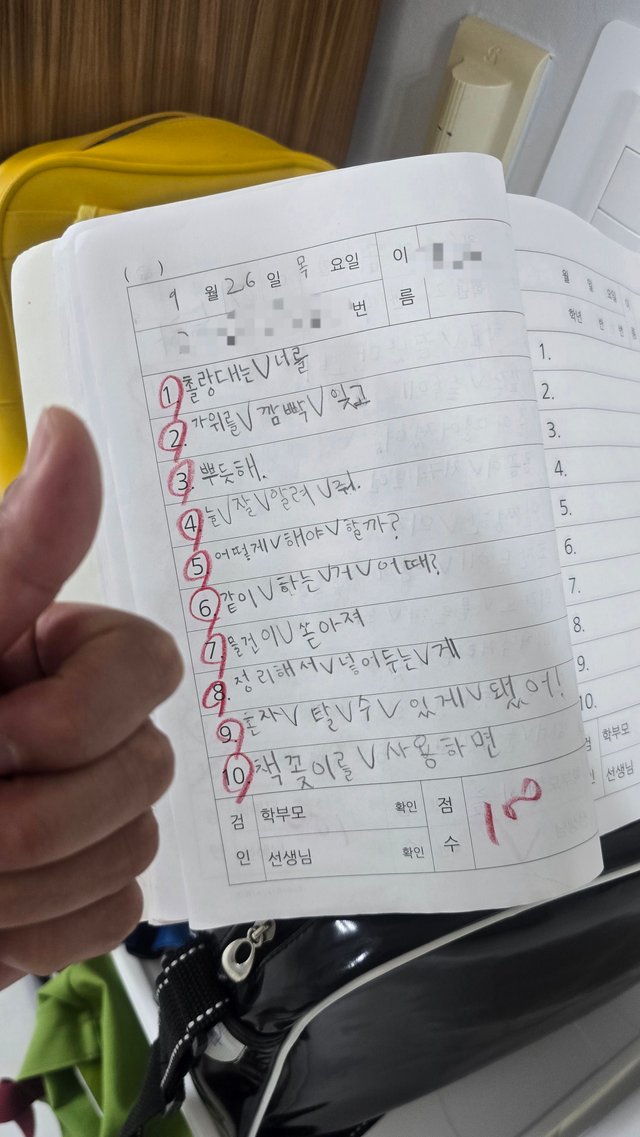 ( )
9 월 26 일 목 요일 이
번 름
1. 촐랑대는∨너를
2. 가위를∨깜빡∨잊고
3. 뿌듯해.
4. 늘∨잘∨알려∨줘.
5. 어떻게∨해야∨할까?
6. 같이∨하는∨거∨어때?
7. 물건이∨쏟아져
8. 정리해서∨넣어두는∨게
9. 혼자∨탈∨수∨있게∨됐어!
10. 책꽂이를∨사용하면
검 학부모 확인 점
인 선생님 확인 수
100
월 일 요일
학년 반 번
1.
2.
3.
4.
5.
6.
7.
8.
9.
10.
검 학부모
인 선생님